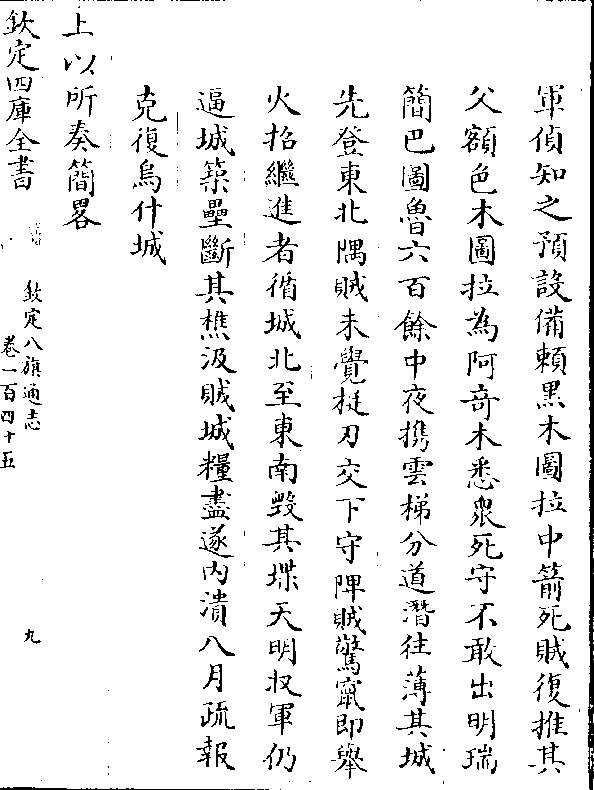 軍偵知之預設備頼黒木圖拉中箭死賊復推其
父額色木圖拉為阿竒木悉衆死守不敢出明瑞
簡巴圖魯六百餘中夜携雲梯分道潛往薄其城
先登東北隅賊未覺梃刃交下守陴賊驚竄即舉
火招繼進者循城北至東南毀其堞天明収軍仍
逼城築壘斷其樵汲賊城糧盡遂内潰八月疏報
克復烏什城
上以所奏簡畧
欽定四庫全書
欽定八旗通志
卷一百四十五
九